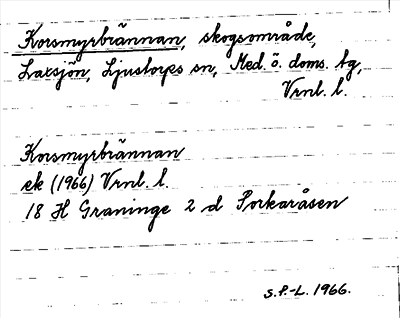 Korsmyrbrännan, skogsområde,
Laxsjön, Ljustorps sn, Med. ö. doms. tg,
Vrnl. l.
Korsmyrbrännan
ek (1966) Vrnl. l.
18 H Graninge 2 d Porkaråsen
S.P.-L. 1966.